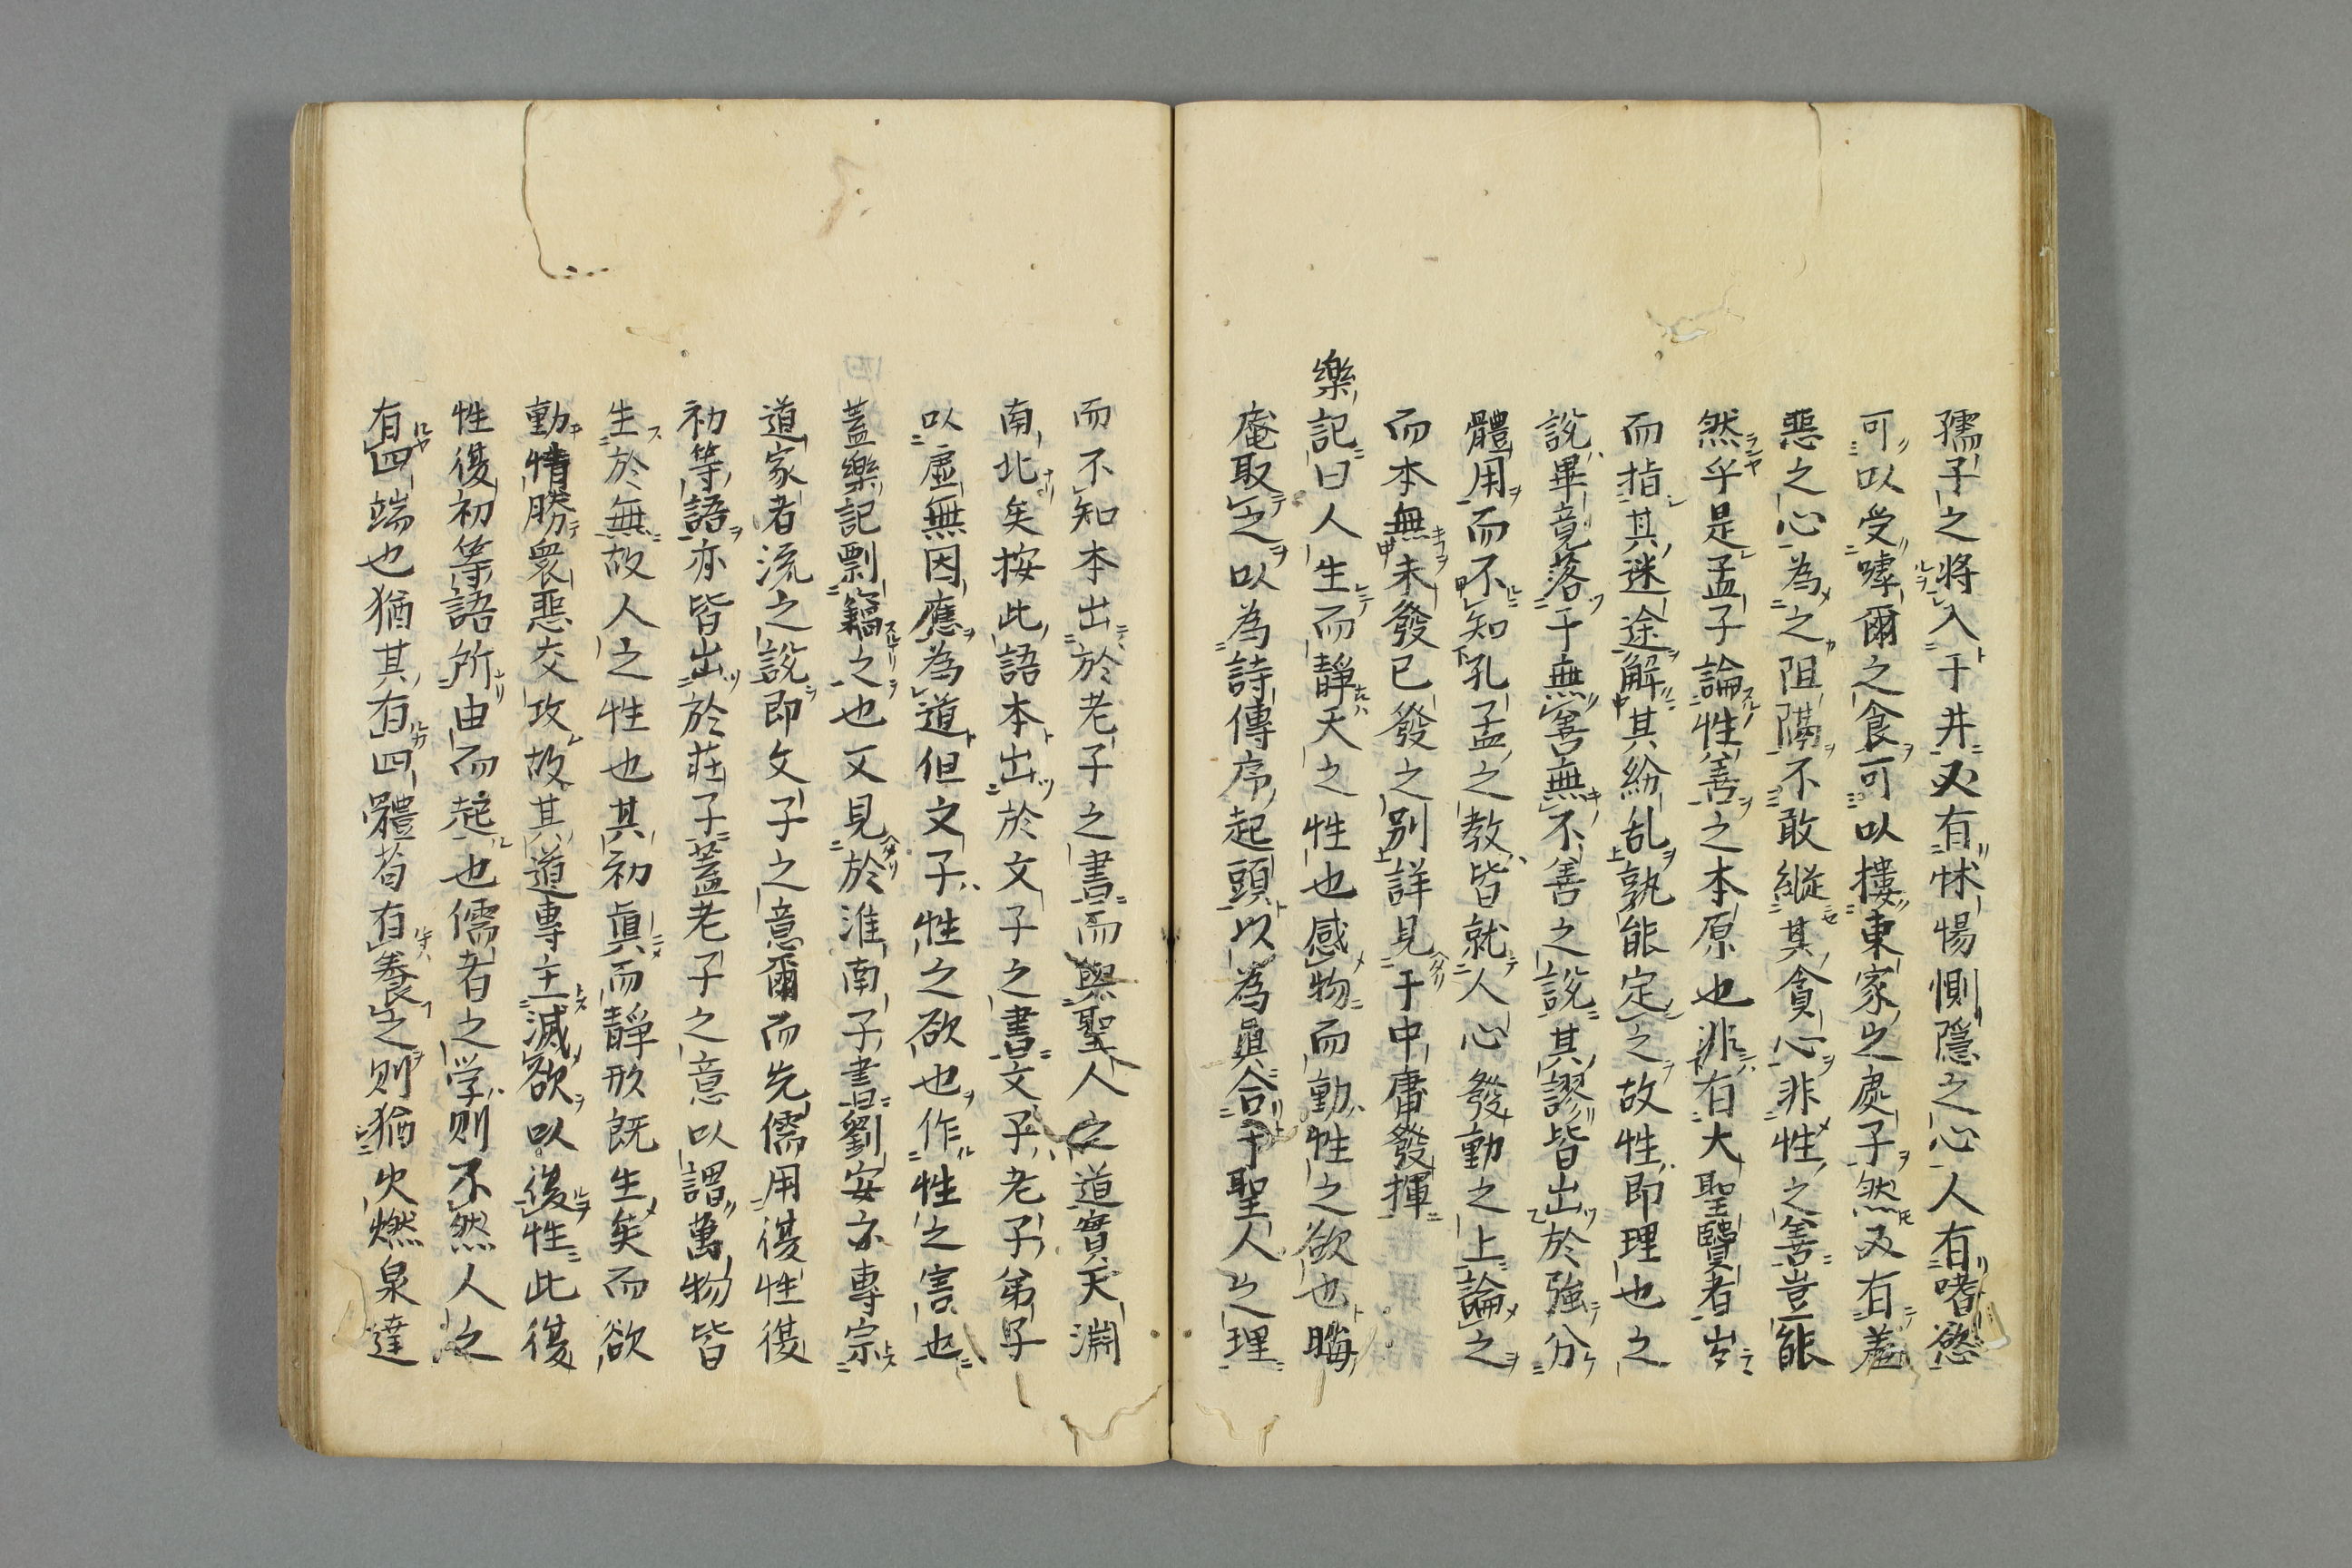 孺子之將入于井又有怵惕惻隱之心人有嗜慾
可以受嘑爾之食可以摟東家之處子然又有羞
惡之心為之阻隔不敢縱其貪心非性之善豈能
然乎是孟子論性善之本原也非有大聖贒者岀
而指其迷途解其紛乱孰能定之故性即理也之
說畢竟落于無善無不善之說其謬皆出於強分
體用而不知孔孟之教皆就人心發動之上論之
而本無未發已發之別詳見于中庸發揮
樂記曰人生而靜天之性也感物而動性之欲也晦
庵取之以為詩傳序起頭以為眞合于聖人之理
而不知本出於老子之書而與聖人之道實天淵
南北矣按此語本出於文子之書文子老子弟子
以虛無因應為道但文子性之欲也作性之害也
蓋樂記剽竊之也又見於淮南子書劉安亦專宗
道家者流之說即文子之意爾而先儒用復性復
初等語亦皆出於莊子蓋老子之意以謂萬物皆
生於無故人之性也其初眞而靜形既生矣而欲
動情勝衆惡交攻故其道專主滅欲以復性此復
性復初等語所由而起也儒者之学則不然人之
有四端也猶其有四體苟有養之則猶火燃泉達